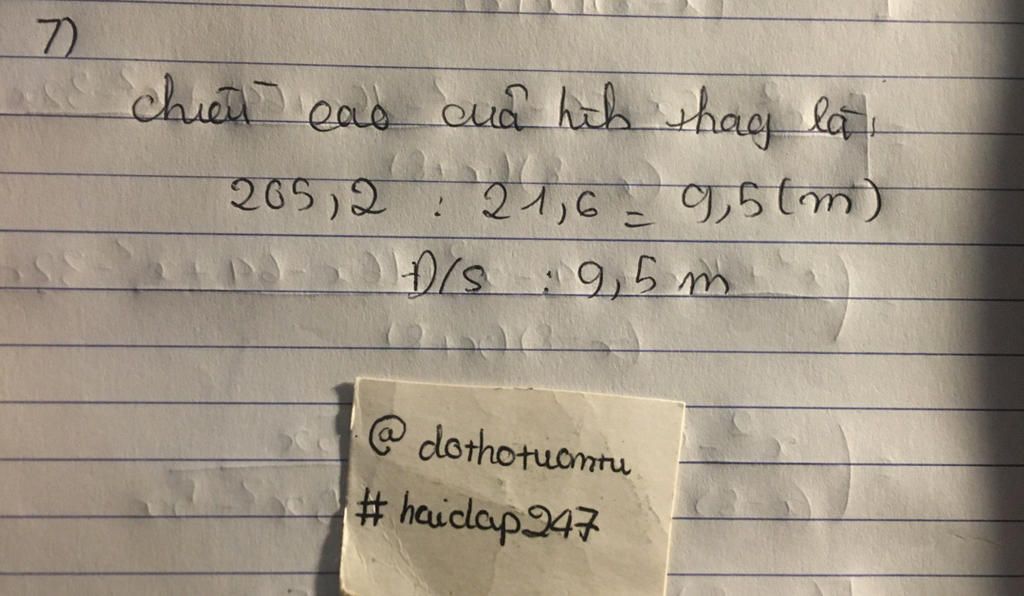 7)
chiều cao cuả hìh thag là:
205,2 : 21,6 = 9,5 (m)
Đ/s : 9,5 m
@ dothotuomtu
# haidap247